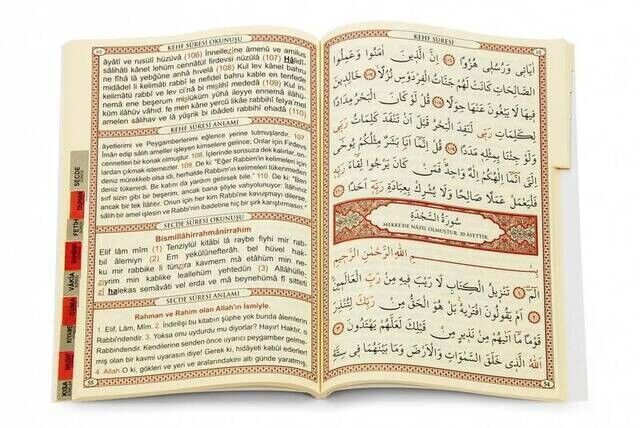 KEHF SÛRESİ OKUNUŞU
âyâtî ve rusulî hüzüvâ (106) İnnellezîne âmenû ve amilus
sâlihâti kânet lehüm cennâtül firdevsi nüzülâ (107) Hâlidî-
ne fîhâ lâ yebğûne anhâ hıvelâ (108) Kul lev kânel bahru
midâdel li kelimâti rabbî le nefidel bahru kable en tenfede
kelimâtü rabbî ve lev ci'nâ bi mislihî mededâ (109) Kul in-
nemâ ene beşerum mislüküm yûhâ ileyye ennemâ ilâhü-
küm ilâhüv vâhid, fe men kâne yercû likâe rabbihî felya'mel
amelen sâlihav ve lâ yüşrik bi ibâdeti rabbihî ehadâ (110)
KEHF SÛRESİ ANLAMI
âyetlerimi ve Peygamberlerimi eğlence yerine tutmuşlardır. 107.
İman edip sâlih ameller işleyen kimselere gelince; Onlar için Firdevs
cennetleri bir konak olmuştur. 108. İçlerinde sonsuza dek kalırlar, on-
dan çıkmak istemezler. 109. De ki: "Eğer Rabbim'in kelimeleri için
deniz mürekkeb olsa idi, herhalde Rabbimin kelimeleri tükenmeden
deniz tükenirdi. Bir katını da yardım getirsek bile." 110. De ki: "Ben
sırf sizin gibi bir beşerim, ancak bana şöyle vahyolunuyor: İlâhınız
ancak bir tek İlâhtır. Onun için her kim Rabbi'ne kavuşmayı dilerse,
sâlih bir amel işlesin ve Rabbi'nin ibadetine hiç bir şirk karıştırmasın."
SECDE SÛRESİ OKUNUŞU
Bismillâhirrahmânirrahim
Elif lâm mîm (1) Tenzîylül kitâbi lâ raybe fîyhi mir rab-
bil âlemiyn (2) Em yekûlûnefterâh, bel hüvel hak-
ku mir rabbike li tünzira kavmem mâ etâhüm min ne-
ziyrim min kablike leallehüm yehtedûn (3) Allâhülle-
zî halekas semâvâti vel erda ve mâ beynehümâ fî sitteti
SECDE SÛRESİ ANLAMI
Rahman ve Rahim olan Allah'ın İsmiyle.
1. Elif, Lâm, Mîm. 2. İndirilişi bu kitabın şüphe yok bunda âlemlerin
Rabbi'ndendir. 3. Yoksa onu uydurdu mu diyorlar? Hayır! Haktır, o
Rabbi'ndendir. Kendilerine senden önce uyarıcı peygamber gelme-
miş olan bir kavmi uyarasın diye! Gerek ki, hidâyeti kabül ederler!
4. Allah O ki, gökleri ve yeri ve aralarındakini altı günde yaratmış,
SECDE
DUHAN
FETH
VÂKIA
CUMA
KIYAMET
KISA
KEHF SÛRESİ
اٰيَات۪ي وَرُسُل۪ي هُزُوًا ۝١٠٦ اِنَّ الَّذ۪ينَ اٰمَنُوا وَعَمِلُوا
الصَّالِحَاتِ كَانَتْ لَهُمْ جَنَّاتُ الْفِرْدَوْسِ نُزُلًا ۝١٠٧ خَالِد۪ينَ
ف۪يهَا لَا يَبْغُونَ عَنْهَا حِوَلًا ۝١٠٨ قُلْ لَوْ كَانَ الْبَحْرُ مِدَادًا
لِكَلِمَاتِ رَبّ۪ي لَنَفِدَ الْبَحْرُ قَبْلَ اَنْ تَنْفَدَ كَلِمَاتُ رَبّ۪ي
وَلَوْ جِئْنَا بِمِثْلِه۪ مَدَدًا ۝١٠٩ قُلْ اِنَّمَٓا اَنَا بَشَرٌ مِثْلُكُمْ يُوحٰٓى
اِلَيَّ اَنَّمَٓا اِلٰهُكُمْ اِلٰهٌ وَاحِدٌ فَمَنْ كَانَ يَرْجُوا لِقَٓاءَ رَبِّه۪
فَلْيَعْمَلْ عَمَلًا صَالِحًا وَلَا يُشْرِكْ بِعِبَادَةِ رَبِّه۪ٓ اَحَدًا ۝١١٠
سُورَةُ السَّجْدَةِ
MEKKE'DE NÂZİL OLMUŞTUR. 30 ÂYETTİR.
بِسْمِ اللّٰهِ الرَّحْمٰنِ الرَّح۪يمِ
الٓمٓ ۝١ تَنْز۪يلُ الْكِتَابِ لَا رَيْبَ ف۪يهِ مِنْ رَبِّ الْعَالَم۪ينَ
۝٢ اَمْ يَقُولُونَ افْتَرٰيهُ بَلْ هُوَ الْحَقُّ مِنْ رَبِّكَ لِتُنْذِرَ
قَوْمًا مَٓا اَتٰيهُمْ مِنْ نَذ۪يرٍ مِنْ قَبْلِكَ لَعَلَّهُمْ يَهْتَدُونَ ۝٣
اَللّٰهُ الَّذ۪ي خَلَقَ السَّمٰوَاتِ وَالْاَرْضَ وَمَا بَيْنَهُمَا ف۪ي سِتَّةِ